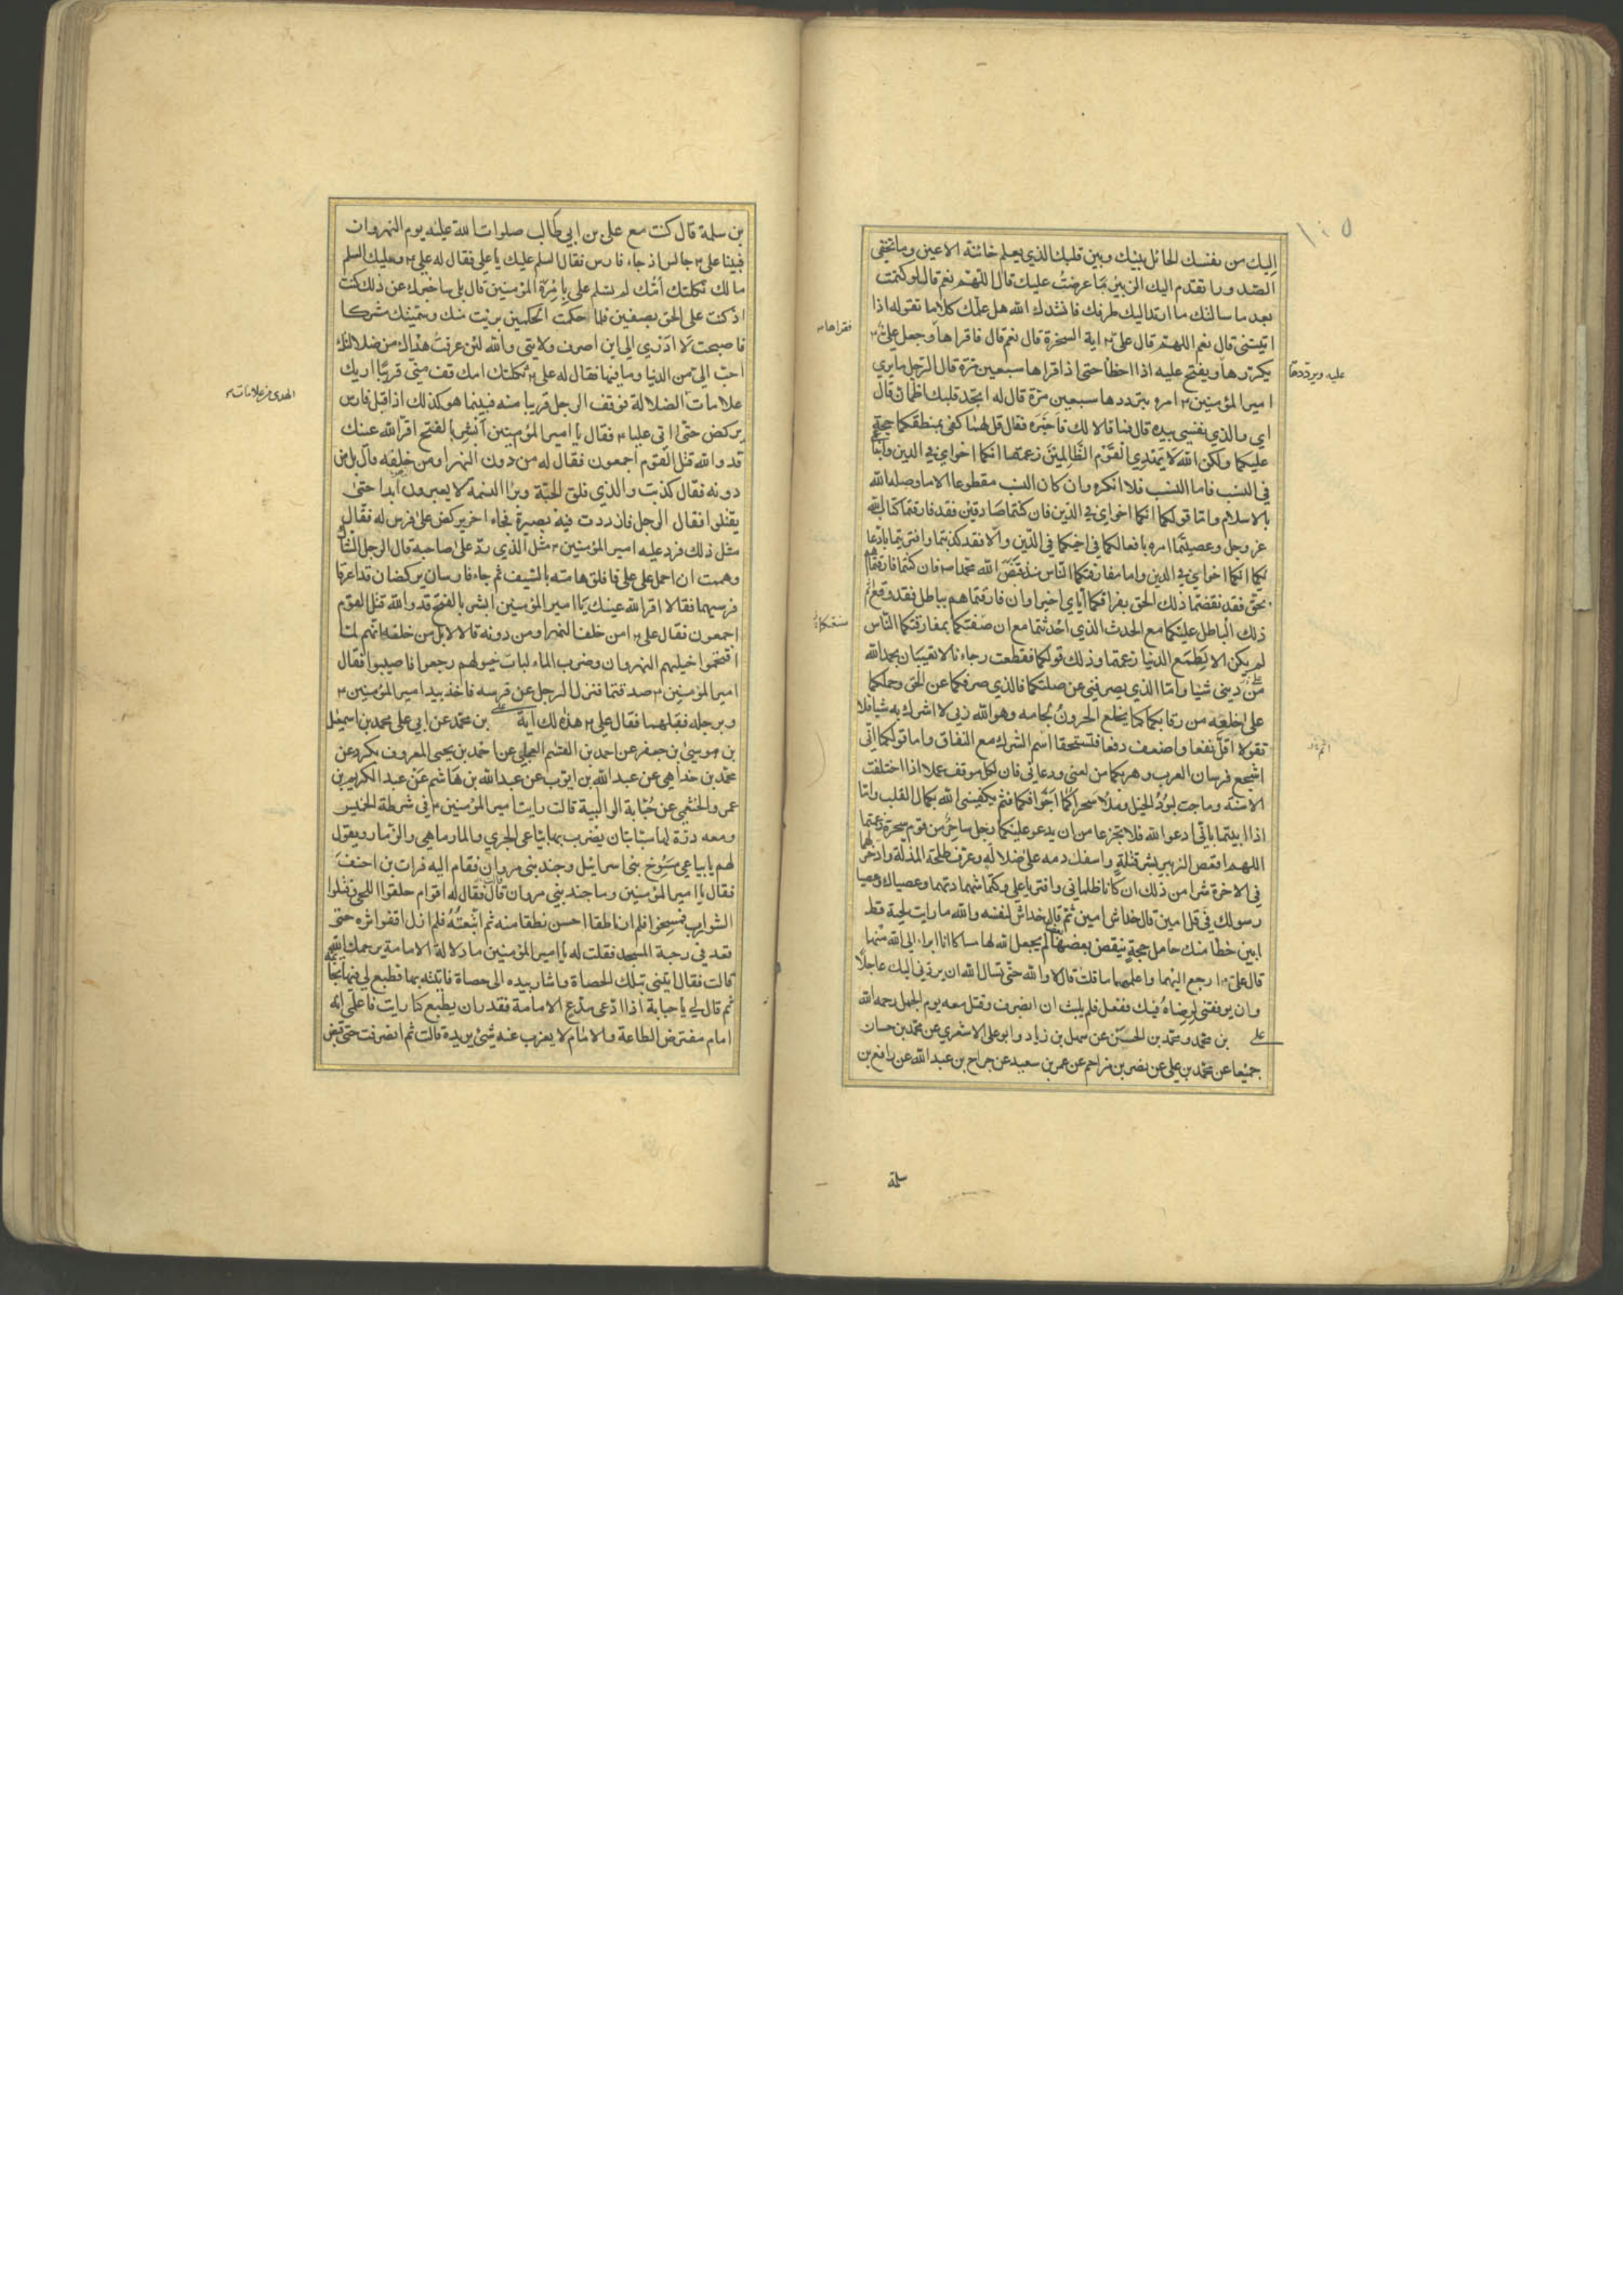 ١٠٥
اليك من نفسك الحائل بينك وبين قلبك الذي يعلم خائنة الاعين وما تخفي
الصدور اتقدم اليك الزبير بما عرضت عليك قال اللهم نعم قال لو كتمت
بعد ما سالتك ما ارتد اليك طرفك فانشدك الله هل علمك كلاما تقوله اذا
اتيتني قال نعم اللهم قال علي اية السخرة قال نعم قال فاقراها وجعل علي
فقراها
يكررها ويفتح عليه اذا اخطأ حتى اذا قراها سبعين مرة قال الرجل ما يرى
عليه ويرددها
امير المؤمنين امره بترددها سبعين مرة قال له اتجد قلبك اطمان قال
اي والذي نفسي بيده قال فما قالا لك فاخبره فقال قل لهما كفى بمنطقكما حجة
عليكما ولكن الله لا يهدي القوم الظالمين زعمتما انكما اخواي في الدين وابنا عمي
في النسب فاما النسب فلا انكره وان كان النسب مقطوعا الا ما وصله الله
بالاسلام واما قولكما انكما اخواي في الدين فان كنتما صادقين فقد فارقتما كتاب الله
عز وجل وعصيتما امره بافعالكما في اخيكما في الدين والا فقد كذبتما وافتريتما بادعا
ئكما انكما اخواي في الدين واما مفارقتكما الناس منذ قبض الله محمدا ص فان كنتما فارقتماهم
بحق فقد نقضتما ذلك الحق بفراقكما اياي اخيرا وان فارقتماهم بباطل فقد وقع اثم
ذلك الباطل عليكما مع الحدث الذي احدثتما مع ان صفتكما بمفارقتكما الناس
صفقتكما
لم يكن الا لطمع الدنيا زعمتما وذلك قولكما فقطعت رجاءنا لا تعيبان بحمد الله
من ديني شيئا واما الذي يصرفني عن صلتكما فالذي صرفكما عن الحق وحملكما
على خلعه من رقابكما كما يخلع الحرون لجامه وهو الله ربي لا اشرك به شيا فلا
تقولا اقل نفعا واضعف دفعا فتستحقا اسم الشرك مع النفاق واما قولكما اني
اشجع فرسان العرب وهربكما من لعني ودعائي فان لكل موقف عملا اذا اختلفت
الاسنة وماجت لبود الخيل وملا سحراكما اجوافكما فثم يكفيني الله بكمال القلب واما
اذا ابيتما باني ادعوا الله فلا تجزعا من ان يدعو عليكما رجل ساحر من قوم سحرة زعمتما
اللهم اقعص الزبير بشر قتلة واسفك دمه على ضلالة وعرف طلحة المذلة وادخر لهما
في الاخرة شرا من ذلك ان كانا ظلماني وافتريا علي وكتما شهادتهما وعصياك وعصيا
رسولك في قل امين قال خداش امين ثم قال خداش لنفسه والله ما رايت لحية قط
ابين خطا منك حامل حجة ينقض بعضها بعضا لم يجعل الله لها مساكا انا ابرا الى الله منهما
قال علي ارجع اليهما واعلمهما ما قلت قال لا والله حتى تسال الله ان يردني اليك عاجلا
وان يوفقني لرضاه فيك ففعل فلم يلبث ان انصرف وقتل معه يوم الجمل رحمه الله
علي بن محمد ومحمد بن الحسن عن سهل بن زياد وابو علي الاشعري عن محمد بن حسان
جميعا عن محمد بن علي عن نصر بن مزاحم عن عمر بن سعيد عن جراح بن عبد الله عن رافع بن
سلمة
بن سلمة قال كنت مع علي بن ابي طالب صلوات الله عليه يوم النهروان
فبينا علي جالس اذ جاء فارس فقال السلم عليك يا علي فقال له علي وعليك السلم
مالك ثكلتك امك لم تسلم علي بامرة المؤمنين قال بلى ساخبرك عن ذلك كنت
اذ كنت على الحق بصفين فلما حكمت الحكمين برئت منك وسميتك مشركا
فاصبحت لا ادري الى اين اصرف ولايتي والله لئن عرفت هداك من ضلالتك
احب الي من الدنيا وما فيها فقال له علي ثكلتك امك قف مني قريبا اريك
الهدى من علامات
علامات الضلالة فوقف الرجل قريبا منه فبينما هو كذلك اذ اقبل فارس
يركض حتى اتى عليا فقال يا امير المؤمنين ابشر بالفتح اقر الله عينك
قد والله قتل القوم اجمعون فقال له من دون النهر او من خلفه قال بل من
دونه فقال كذبت والذي فلق الحبة وبرا النسمة لا يعبرون ابدا حتى
يقتلوا فقال الرجل فازددت فيه بصيرة فجاء اخر يركض على فرس له فقال
مثل ذلك فرد عليه امير المؤمنين مثل الذي رد على صاحبه قال الرجل الشاك
وهممت ان احمل على علي فافلق هامته بالسيف ثم جاء فارسان يركضان قد اعرقا
فرسيهما فقالا اقر الله عينك يا امير المؤمنين ابشر بالفتح قد والله قتل القوم
اجمعون فقال علي امن خلف النهر او من دونه قالا لا بل من خلفه انهم لما
اقتحموا خيلهم النهروان وضرب الماء لبات خيولهم رجعوا فاصيبوا فقال
امير المؤمنين صدقتما فنزل الرجل عن فرسه فاخذ بيد امير المؤمنين
وبرجله فقبلهما فقال علي هذه لك اية علي بن محمد عن ابي علي محمد بن اسمعيل
بن موسى بن جعفر عن احمد بن القسم العجلي عن احمد بن يحيى المعروف بكرد عن
محمد بن خداهي عن عبد الله بن ايوب عن عبد الله بن هاشم عن عبد الكريم بن
عمرو الخثعمي عن حبابة الوالبية قالت رايت امير المؤمنين في شرطة الخميس
ومعه درة لها سبابتان يضرب بها بياعي الجري والمارماهي والزمار ويقول
لهم يا بياعي مسوخ بني اسرائيل وجند بني مروان فقام اليه فرات بن احنف
فقال يا امير المؤمنين وما جند بني مروان قال فقال له اقوام حلقوا اللحى وفتلوا
الشوارب فمسخوا فلم ار ناطقا احسن نطقا منه ثم اتبعته فلم ازل اقفوا ثره حتى
قعد في رحبة المسجد فقلت له يا امير المؤمنين ما دلالة الامامة يرحمك الله
قالت فقال ايتني بتلك الحصاة واشار بيده الى حصاة فاتيته بها فطبع لي فيها بخاتمه
ثم قال لي يا حبابة اذا ادعى مدع الامامة فقدر ان يطبع كما رايت فاعلمي انه
امام مفترض الطاعة والامام لا يعزب عنه شيء يريده قالت ثم انصرفت حتى قبض